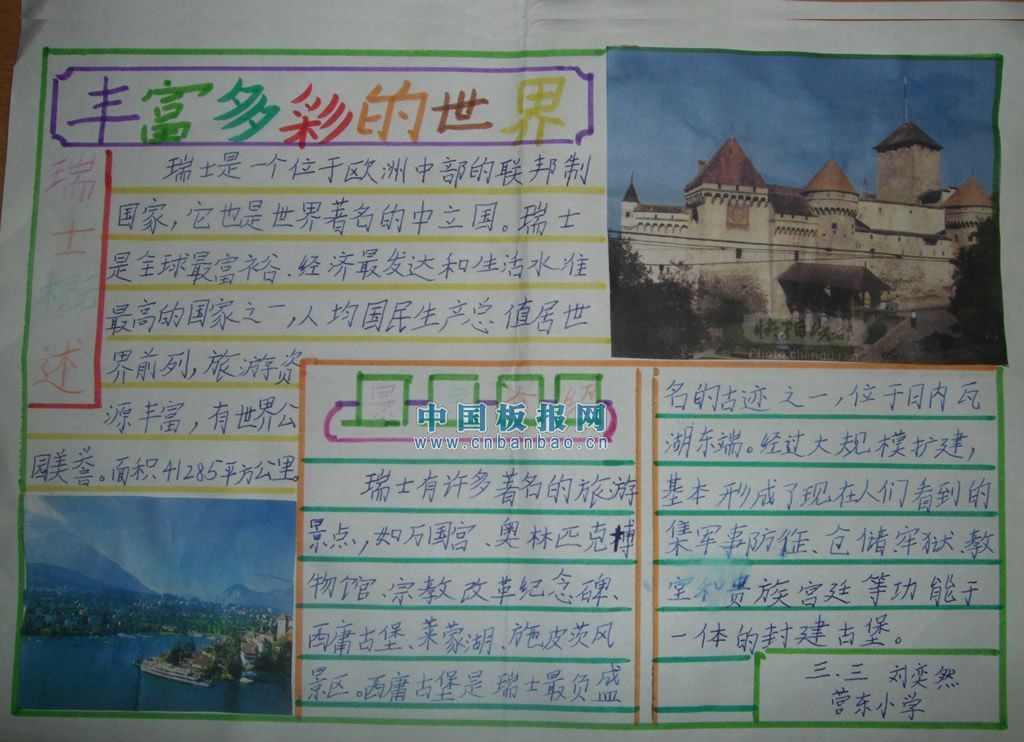 丰富多彩的世界
瑞士概述
瑞士是一个位于欧洲中部的联邦制
国家，它也是世界著名的中立国。瑞士
是全球最富裕、经济最发达和生活水准
最高的国家之一，人均国民生产总值居世
界前列，旅游资
源丰富，有世界公
园美誉。面积41285平方公里。
景
中国板报网
www.cnbanbao.cn
瑞士有许多著名的旅游
景点，如万国宫、奥林匹克博
物馆、宗教改革纪念碑、
西庸古堡、莱蒙湖、施皮茨风
景区。西庸古堡是瑞士最负盛
名的古迹之一，位于日内瓦
湖东端。经过大规模扩建，
基本形成了现在人们看到的
集军事防住、仓储、牢狱、教
室和贵族宫廷等功能于
一体的封建古堡。
三.三 刘奕然
营东小学